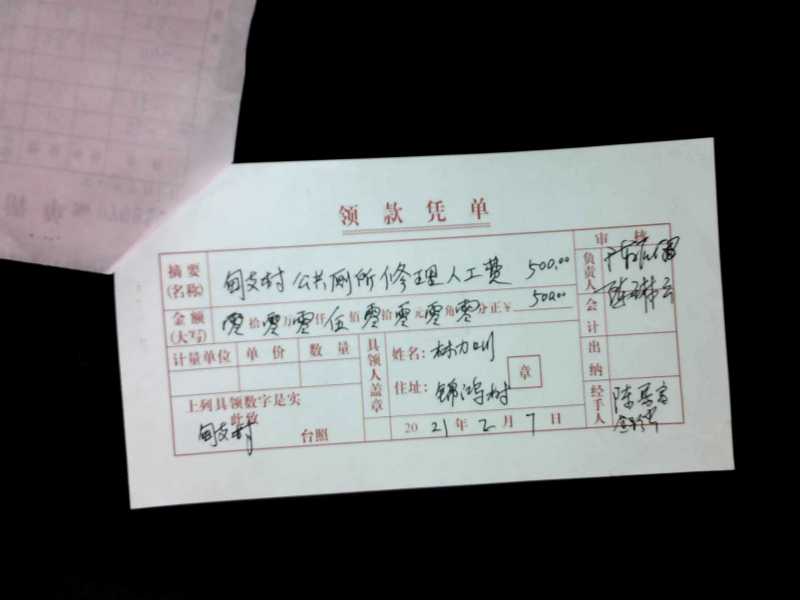 领款凭单
摘要(名称) 甸支村公共厕所修理人工费 500.00 审核
金额(大写) 零拾零万零仟伍佰零拾零元零角零分正¥ 500.00 负责人
计量单位 单价 数量 具领人盖章 姓名: 会计
住址: 锦鸿村 章 出纳
上列具领数字是实
此致
甸支村 台照 2021年2月7日 经手人